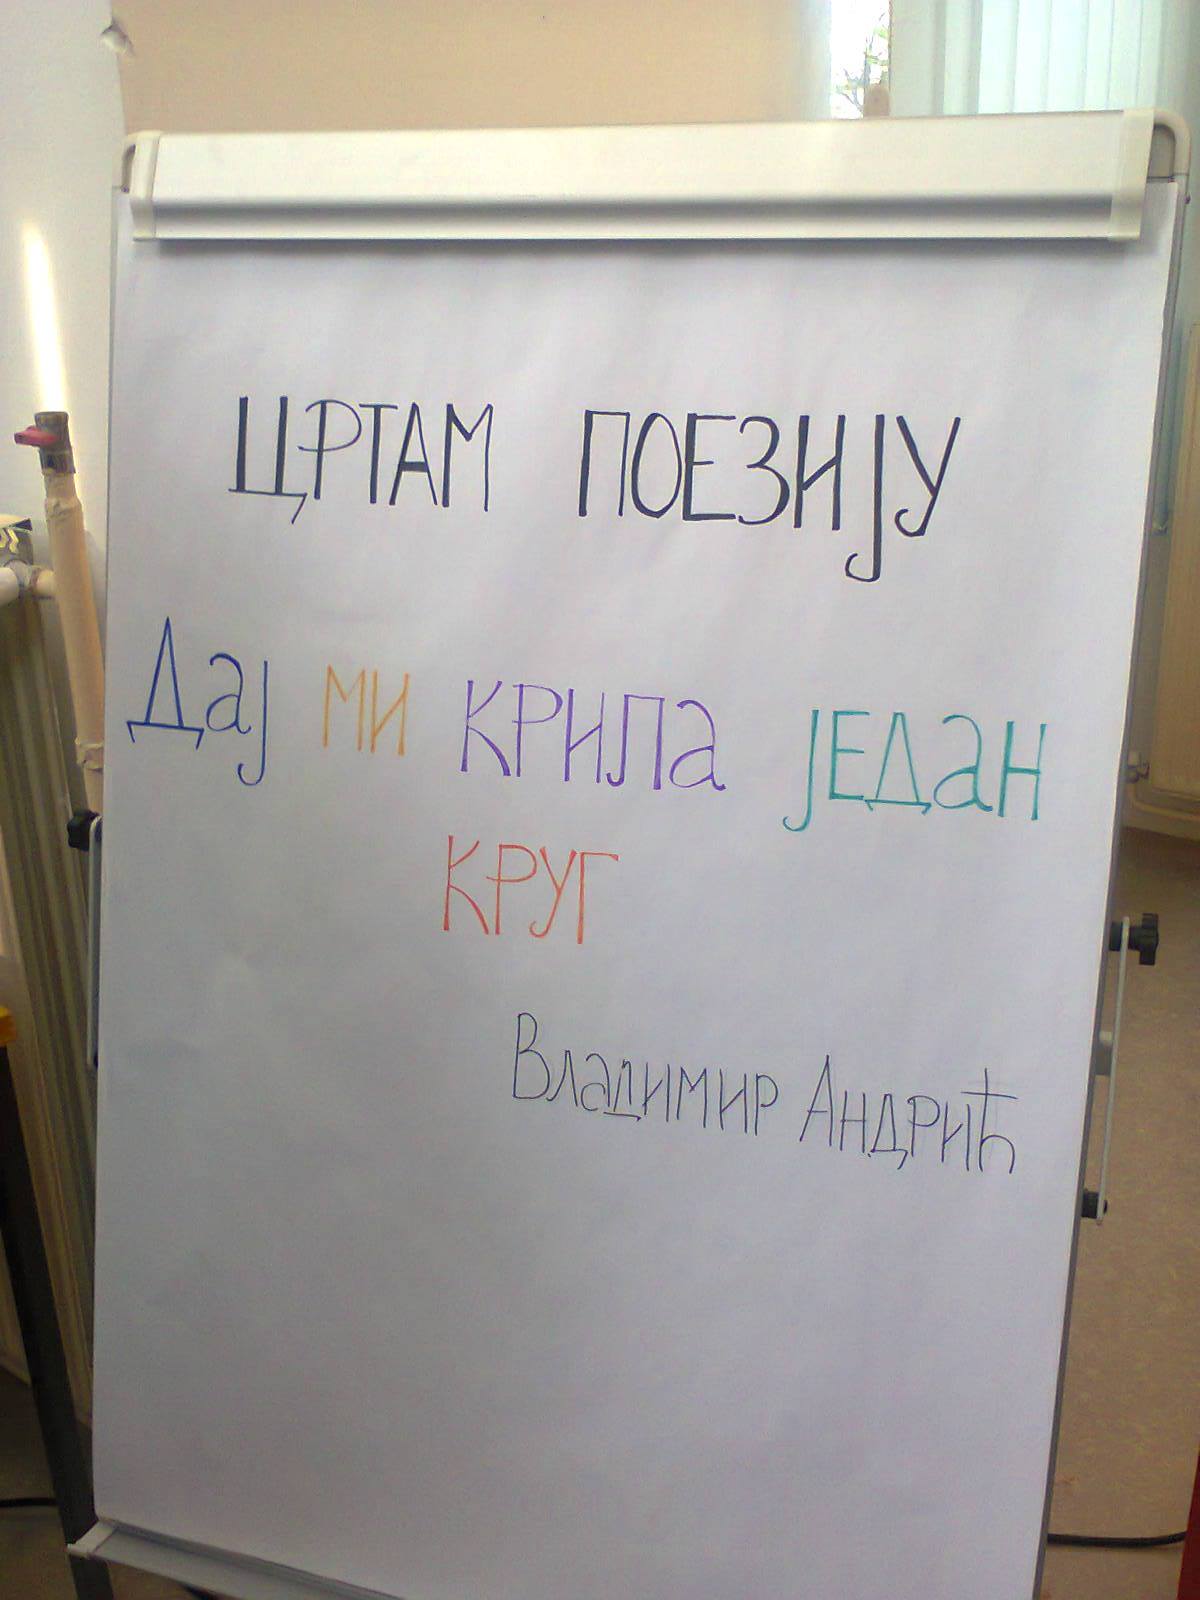 ЦРТАМ ПОЕЗИЈУ
Дај ми крила један
круг
Владимир Андрић